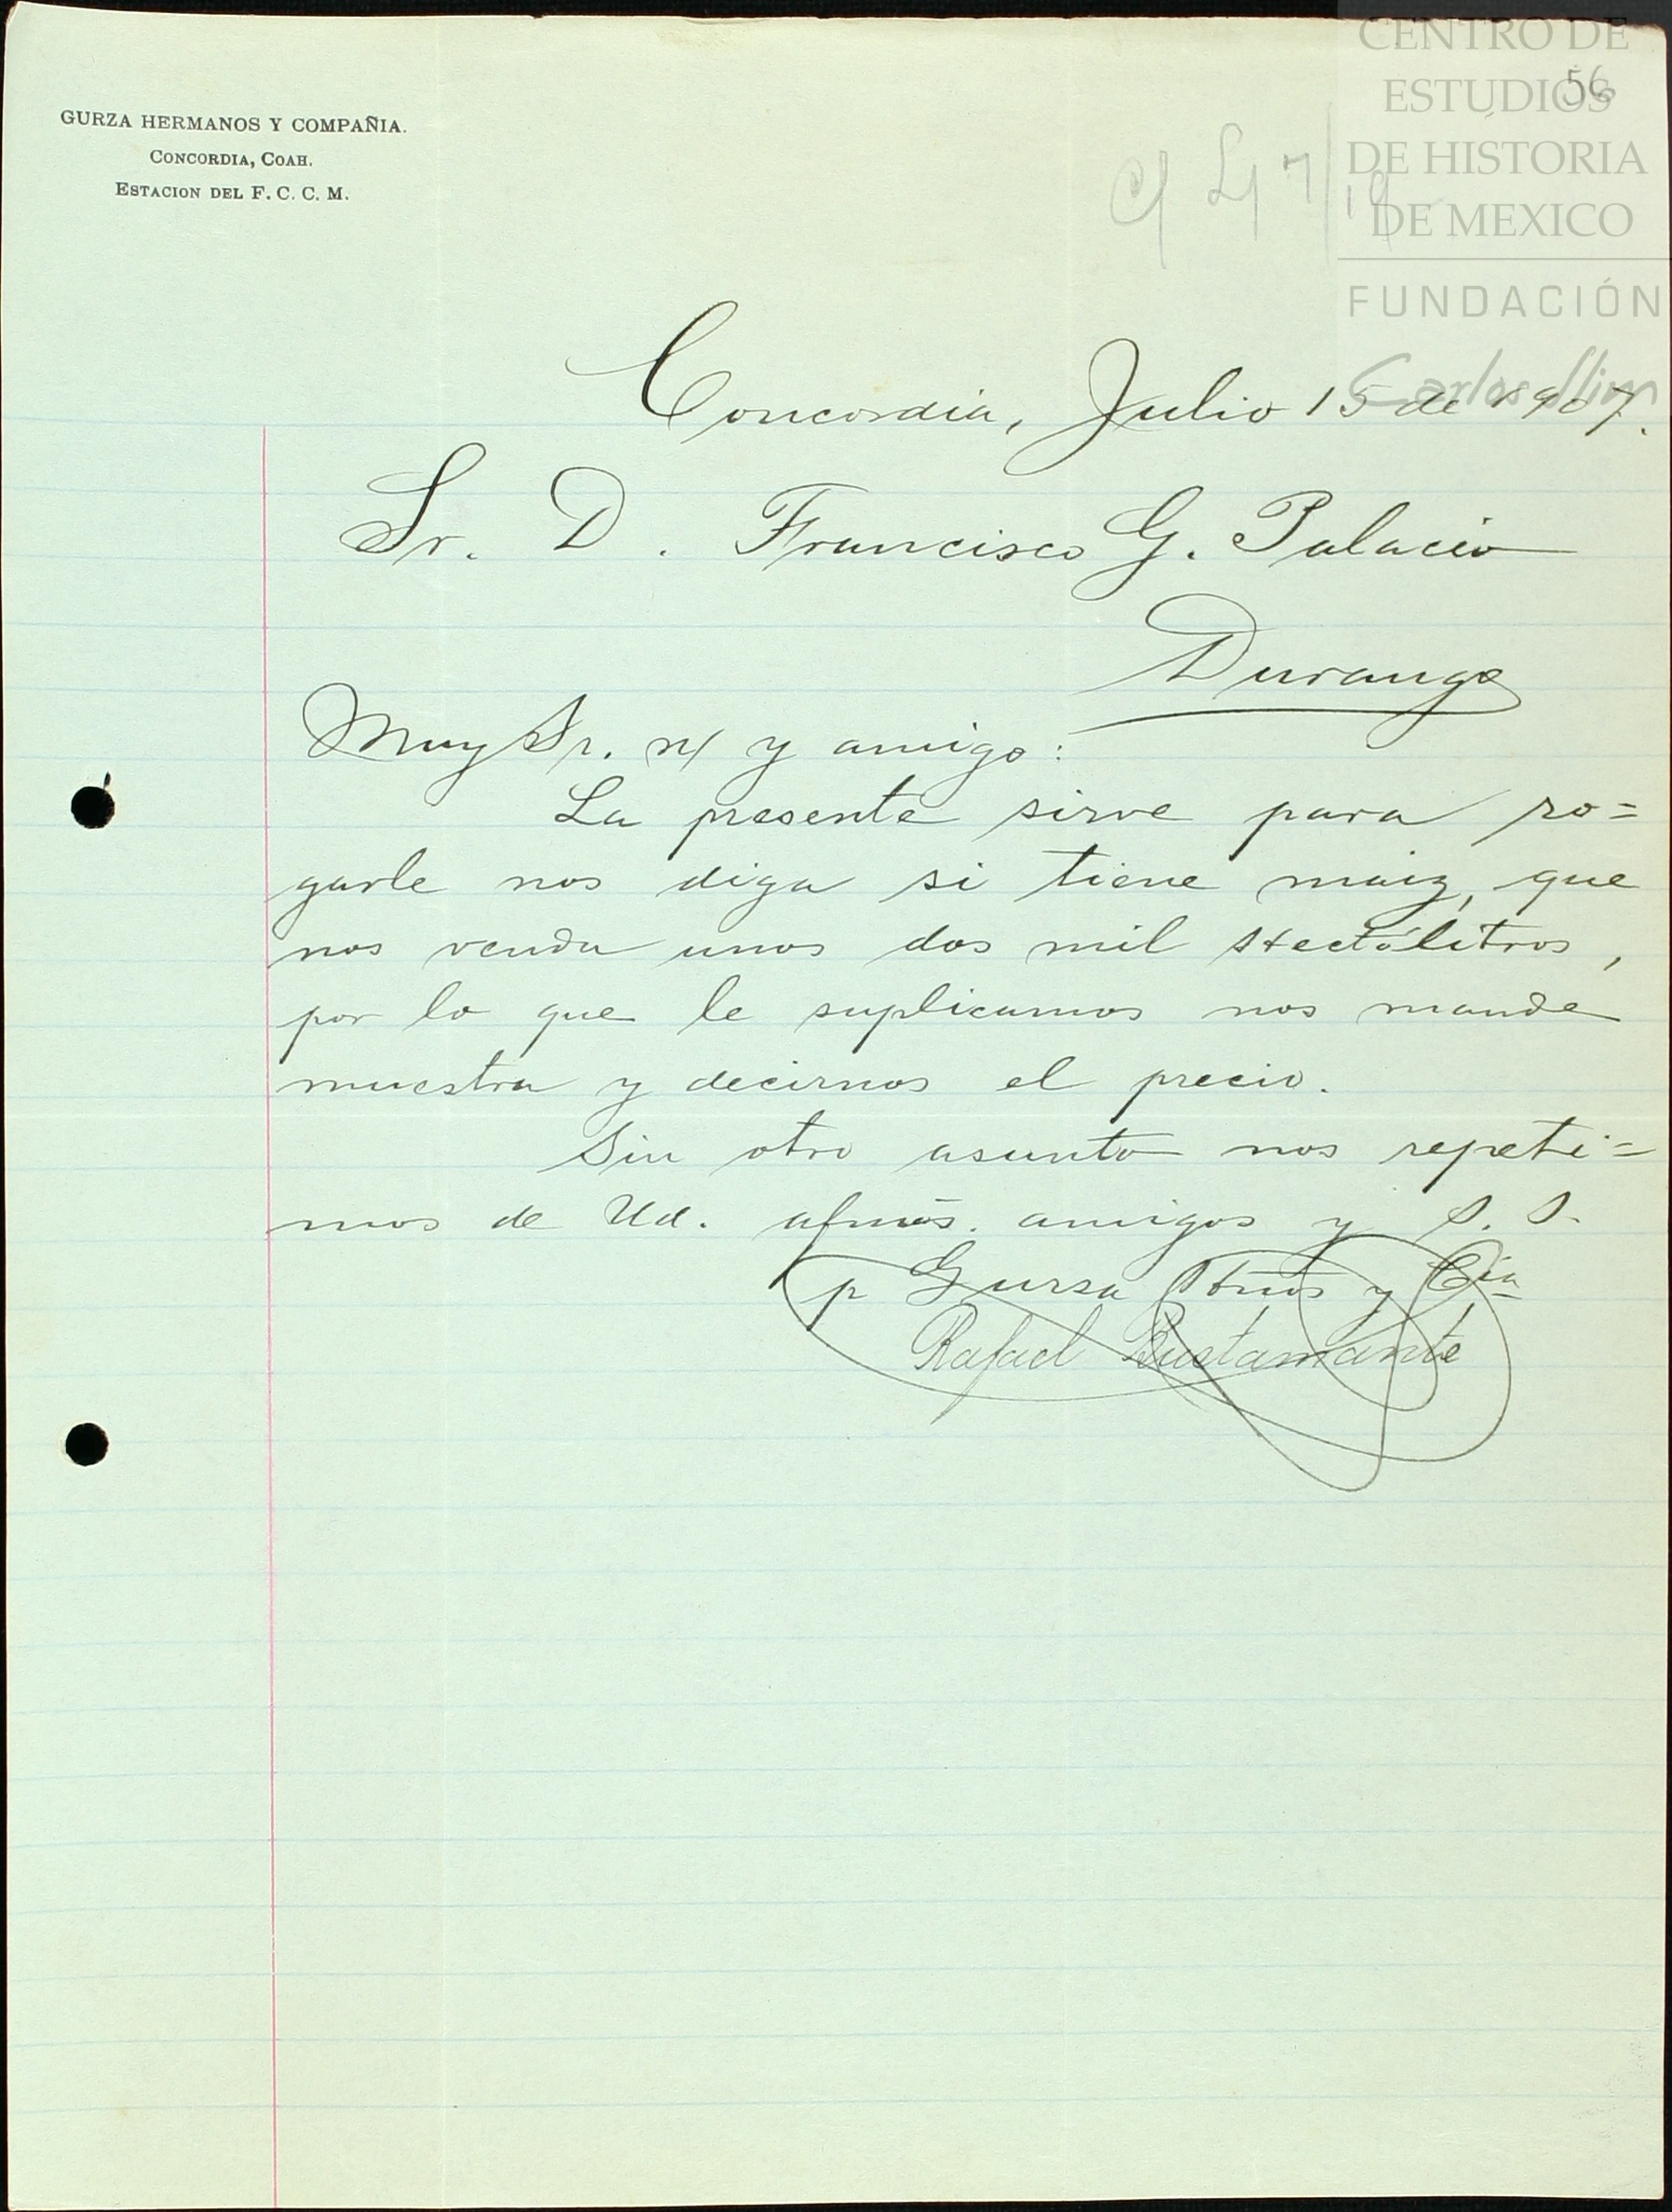 CENTRO DE
ESTUDIOS
DE HISTORIA
DE MEXICO
FUNDACIÓN
Carlos Slim
56
GURZA HERMANOS Y COMPAÑIA.
CONCORDIA, COAH.
ESTACION DEL F. C. C. M.
Concordia, Julio 15 de 1907.
Sr. D. Francisco G. Palacio
Durango
Muy Sr. n/ y amigo:
La presente sirve para ro=
garle nos diga si tiene maiz, que
nos venda unos dos mil Hectólitros,
por lo que le suplicamos nos mande
muestra y decirnos el precio.
Sin otro asunto nos repeti=
mos de Ud. afmos. amigos y S. S.
p Gurza Hnos y Cía
Rafael Bustamante